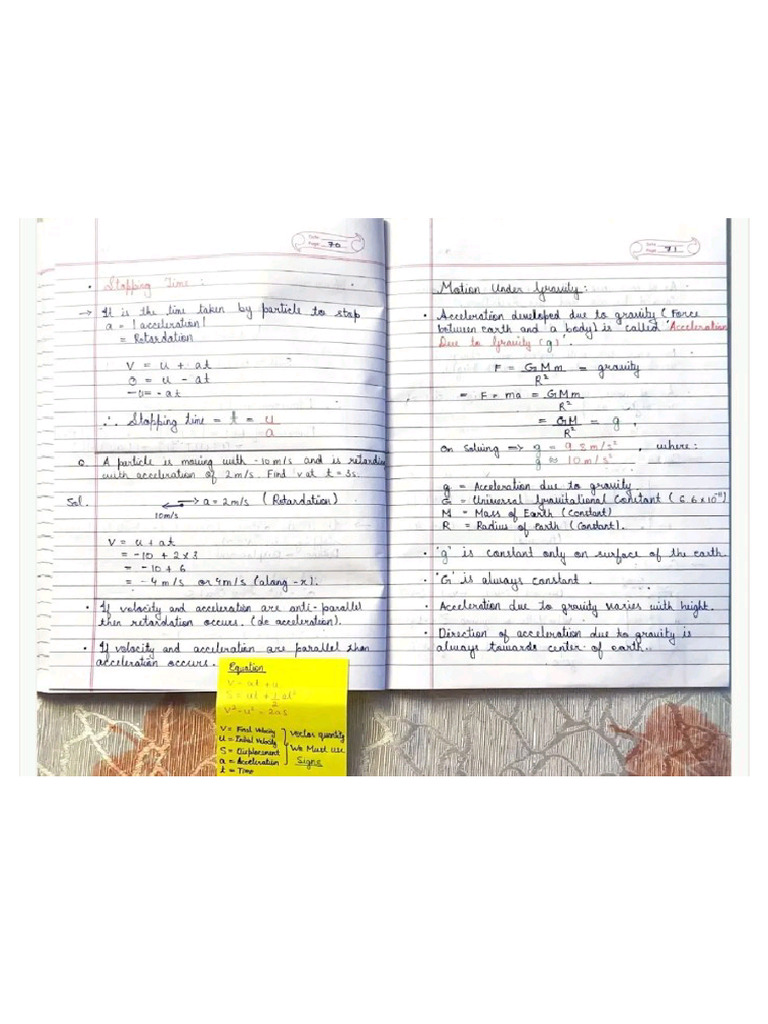 Date
Page 70
• Stopping Time :
→ It is the time taken by particle to stop
a = |acceleration|
= Retardation
V = u + at
0 = u - at
-u = - at
∴ Stopping time = t = u/a
Q. A particle is moving with -10 m/s and is retarding
with acceleration of 2 m/s. Find v at t = 3s.
Sol. → a = 2m/s (Retardation)
10m/s
V = u + at
= -10 + 2 × 3
= -10 + 6
= -4 m/s or 4 m/s (along -x).
• If velocity and acceleration are anti-parallel
then retardation occurs. (de acceleration).
• If velocity and acceleration are parallel then
acceleration occurs.
Equation
V = at + u
S = ut + 1/2 at²
V² - u² = 2as
V = Final Velocity
u = Initial Velocity
S = Displacement
a = Acceleration
t = Time
vector quantity
We Must use
Signs
Date
Page 71
Motion Under Gravity :
• Acceleration developed due to gravity (Force
between earth and a body) is called 'Acceleration
Due to Gravity (g)'.
F = GMm/R² = gravity
= F = ma = GMm/R²
= GM/R² = g ,
On Solving ⇒ g = 9.8 m/s² , where:
g ≈ 10 m/s²
g = Acceleration due to gravity
G = Universal Gravitational Constant (6.6×10⁻¹¹)
M = Mass of Earth (Constant)
R = Radius of earth (Constant).
• 'g' is constant only on surface of the earth.
• 'G' is always constant.
• Acceleration due to gravity varies with height.
• Direction of acceleration due to gravity is
always towards center of earth.